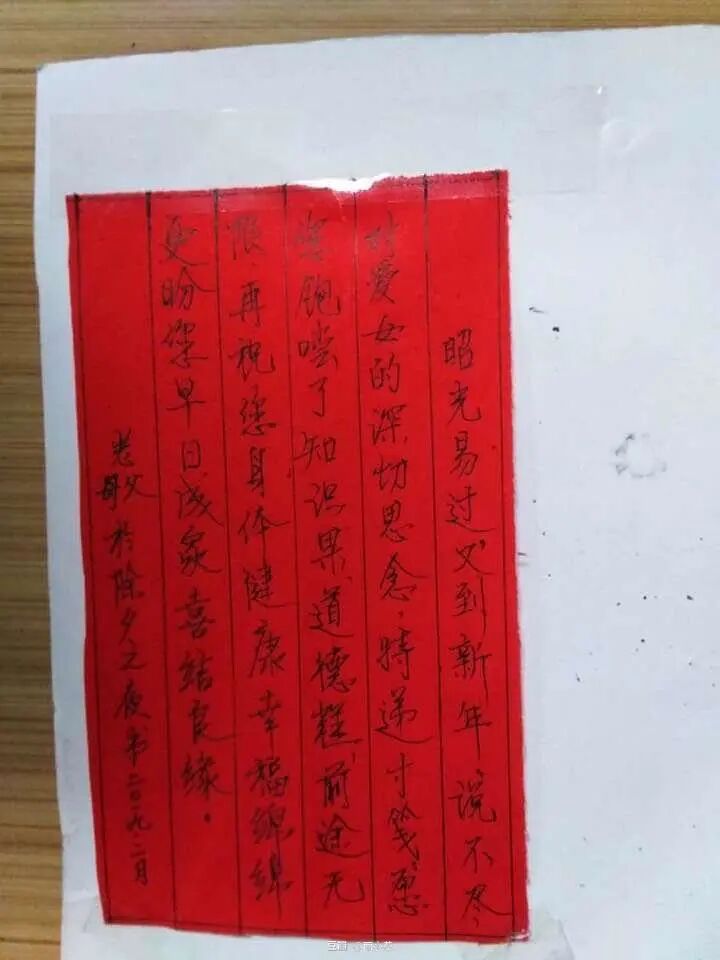 昭光易过,又到新年,说不尽,
对爱女的深切思念,特递寸笺,愿
您饱尝了知识果,道德糕,前途无
限,再祝您身体健康幸福绵绵
更盼您早日成家喜结良缘。
老父母於除夕之夜书二〇一九、二月